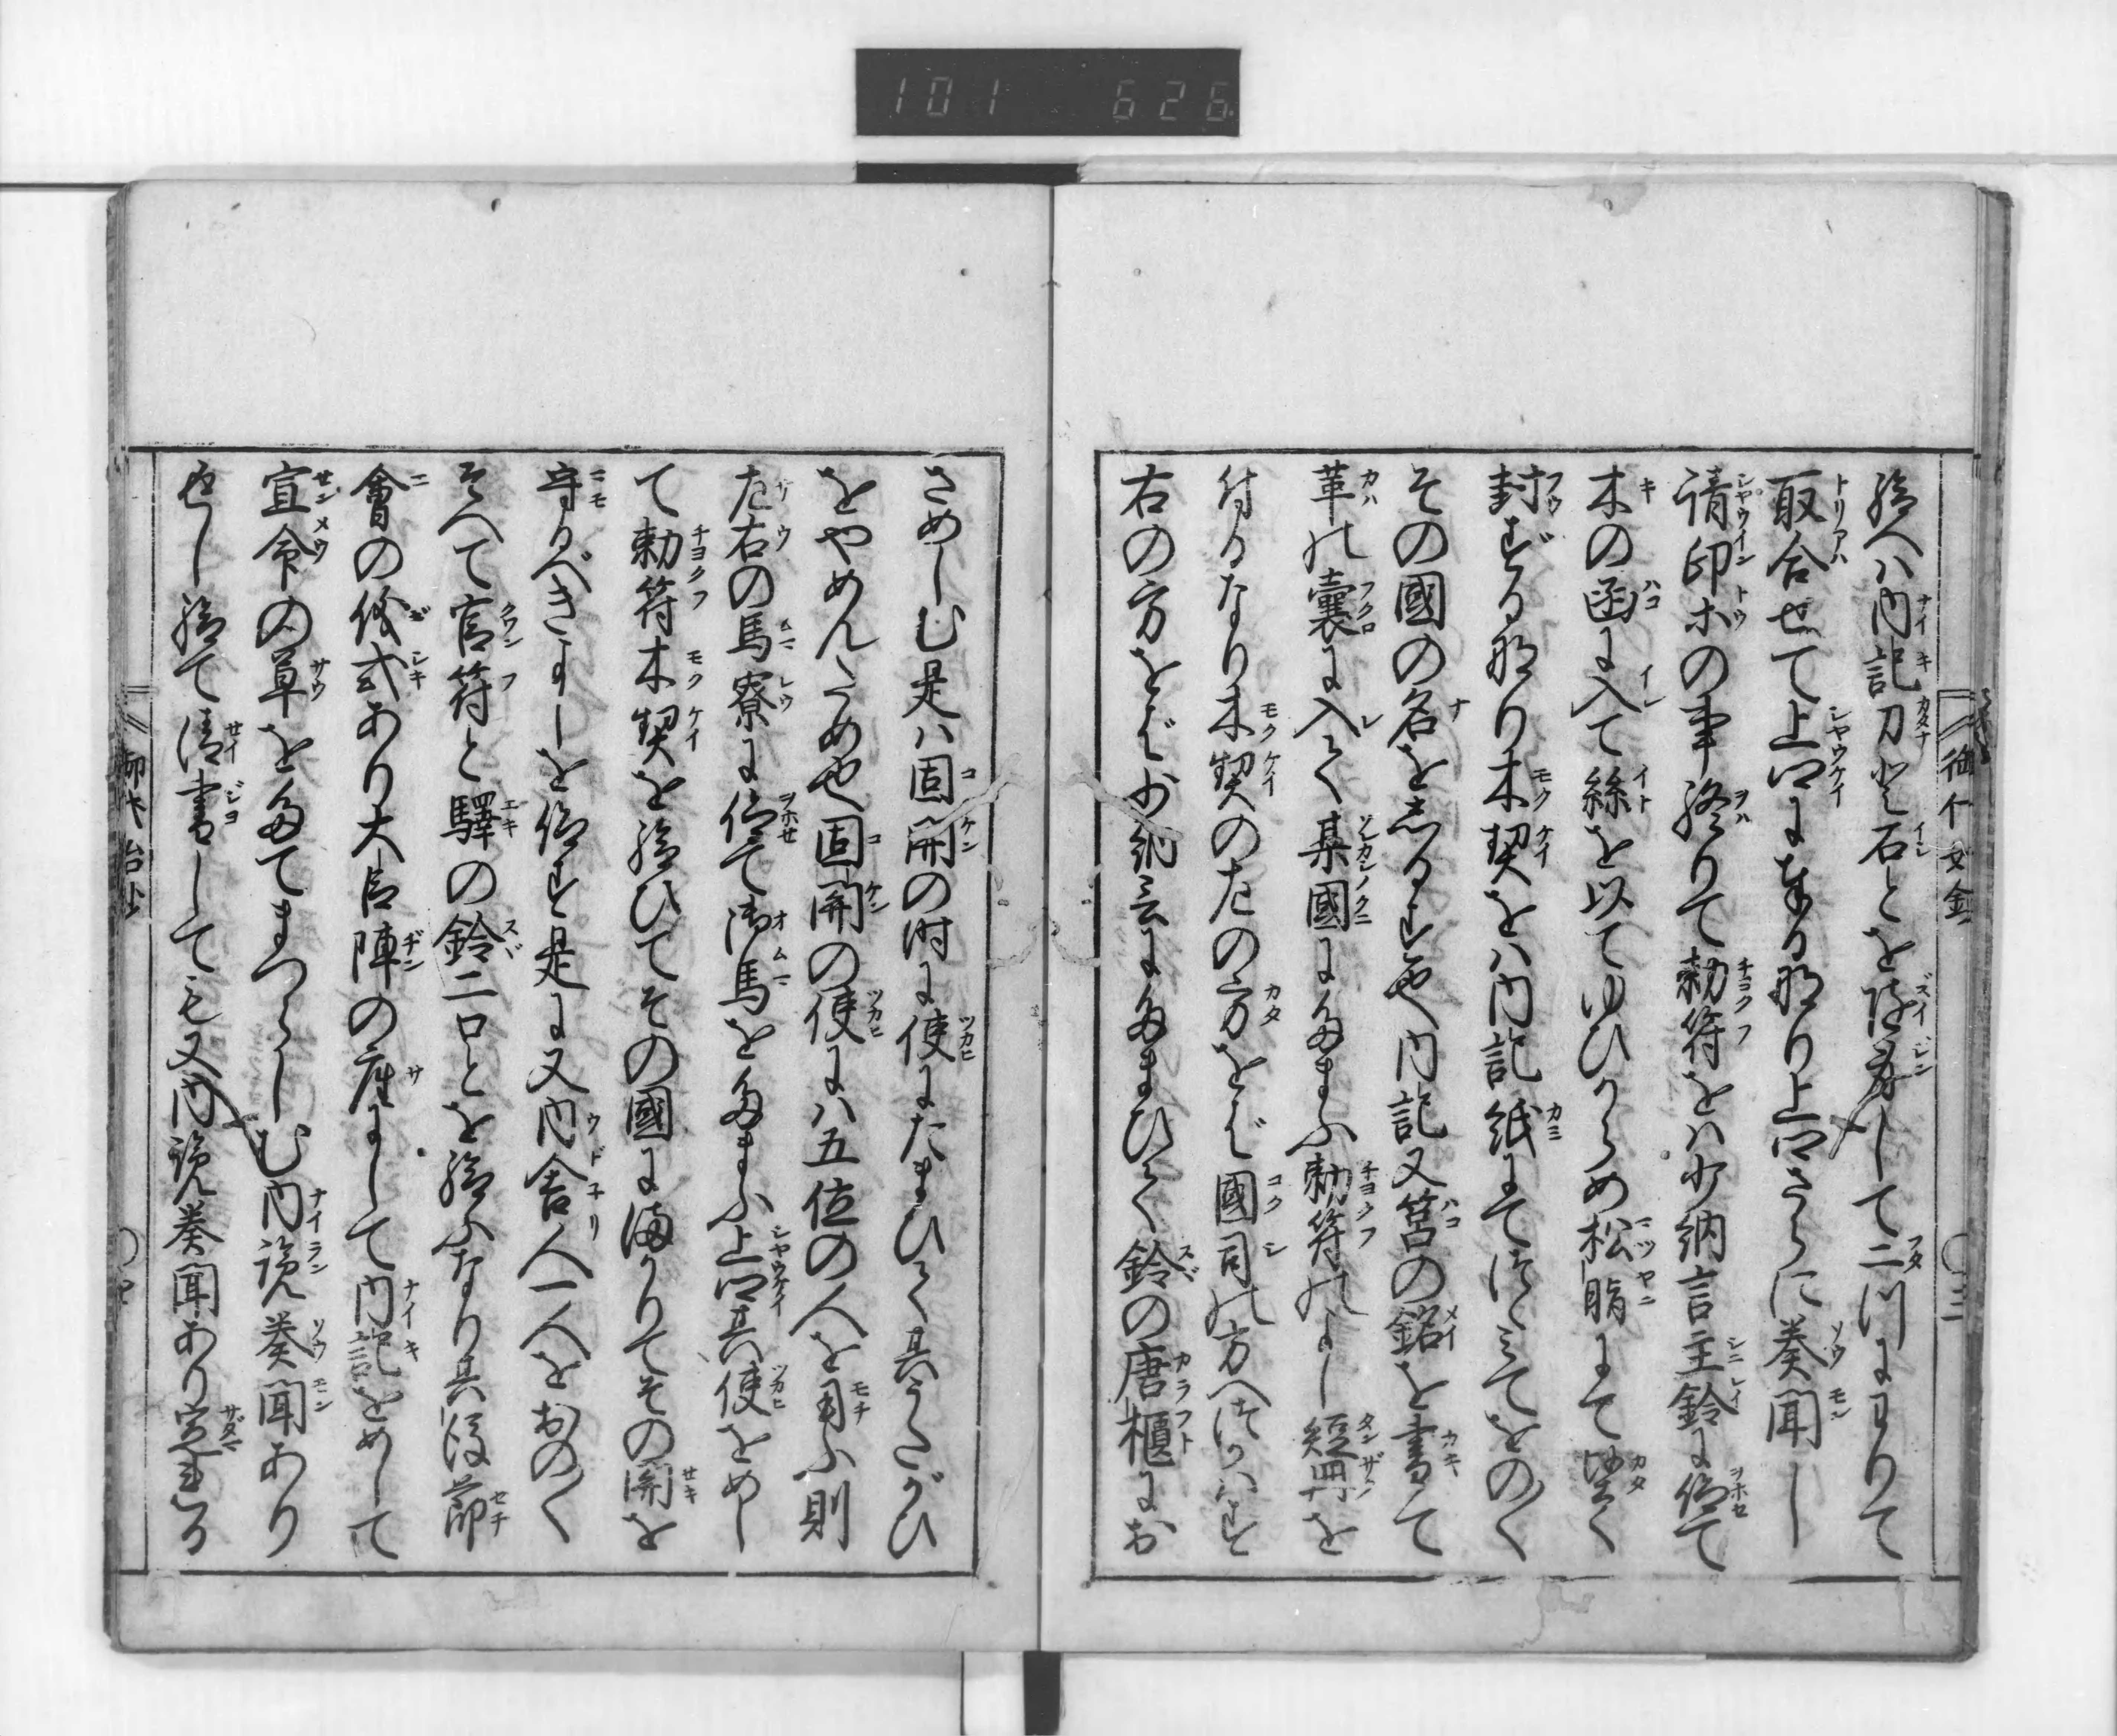 101 626
給へハ内記刀と石とを随身して二つにわりて
取合せて上卿にまいる也上卿さらに奏聞し
請印等の事終りて勅符をハ少納言主鈴に仰て
木の函に入て絲を以てゆひからめ松脂にて堅く
封ずる也木契をハ内記紙にてつゝみてをの〱
その國の名をしるす也内記又筥の銘を書て
革の嚢に入て某國にたまふ勅符のよし短冊を
付るなり木契の左の方をば國司の方へつかハす
右の方をば少納言にたまひて鈴の唐櫃にお
さめしむ是ハ固関の時に使にたまひて其うたがひ
をやめんため也固関の使にハ五位の人を用ふ則
左右の馬寮に仰て御馬をたまふ上卿其使をめし
て勅符木契を給ひてその國にまかりてその関を
守るべきよしを仰す是に又内舎人一人をおの〱
そへて官符と驛の鈴二口とを給ふなり其後節
會の儀式あり大臣陣の座にして内記をめして
宣命の草をたてまつらしむ内覧奏聞あり
返し給て清書しても又内覧奏聞あり定まれる